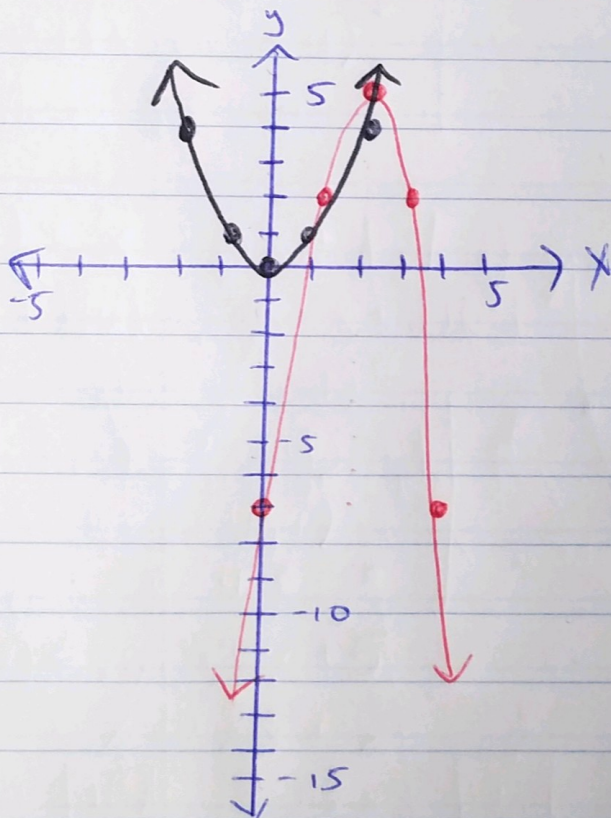 y
5
-5
X
5
-5
-10
-15